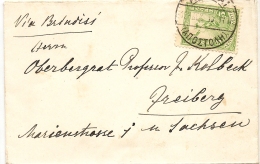 Via Brindisi
Herrn
Oberbergrat Professor J. Kolbeck
Freiberg
Marienstrasse
Sachsen
ΑΠΟΣΤΟΛΗ